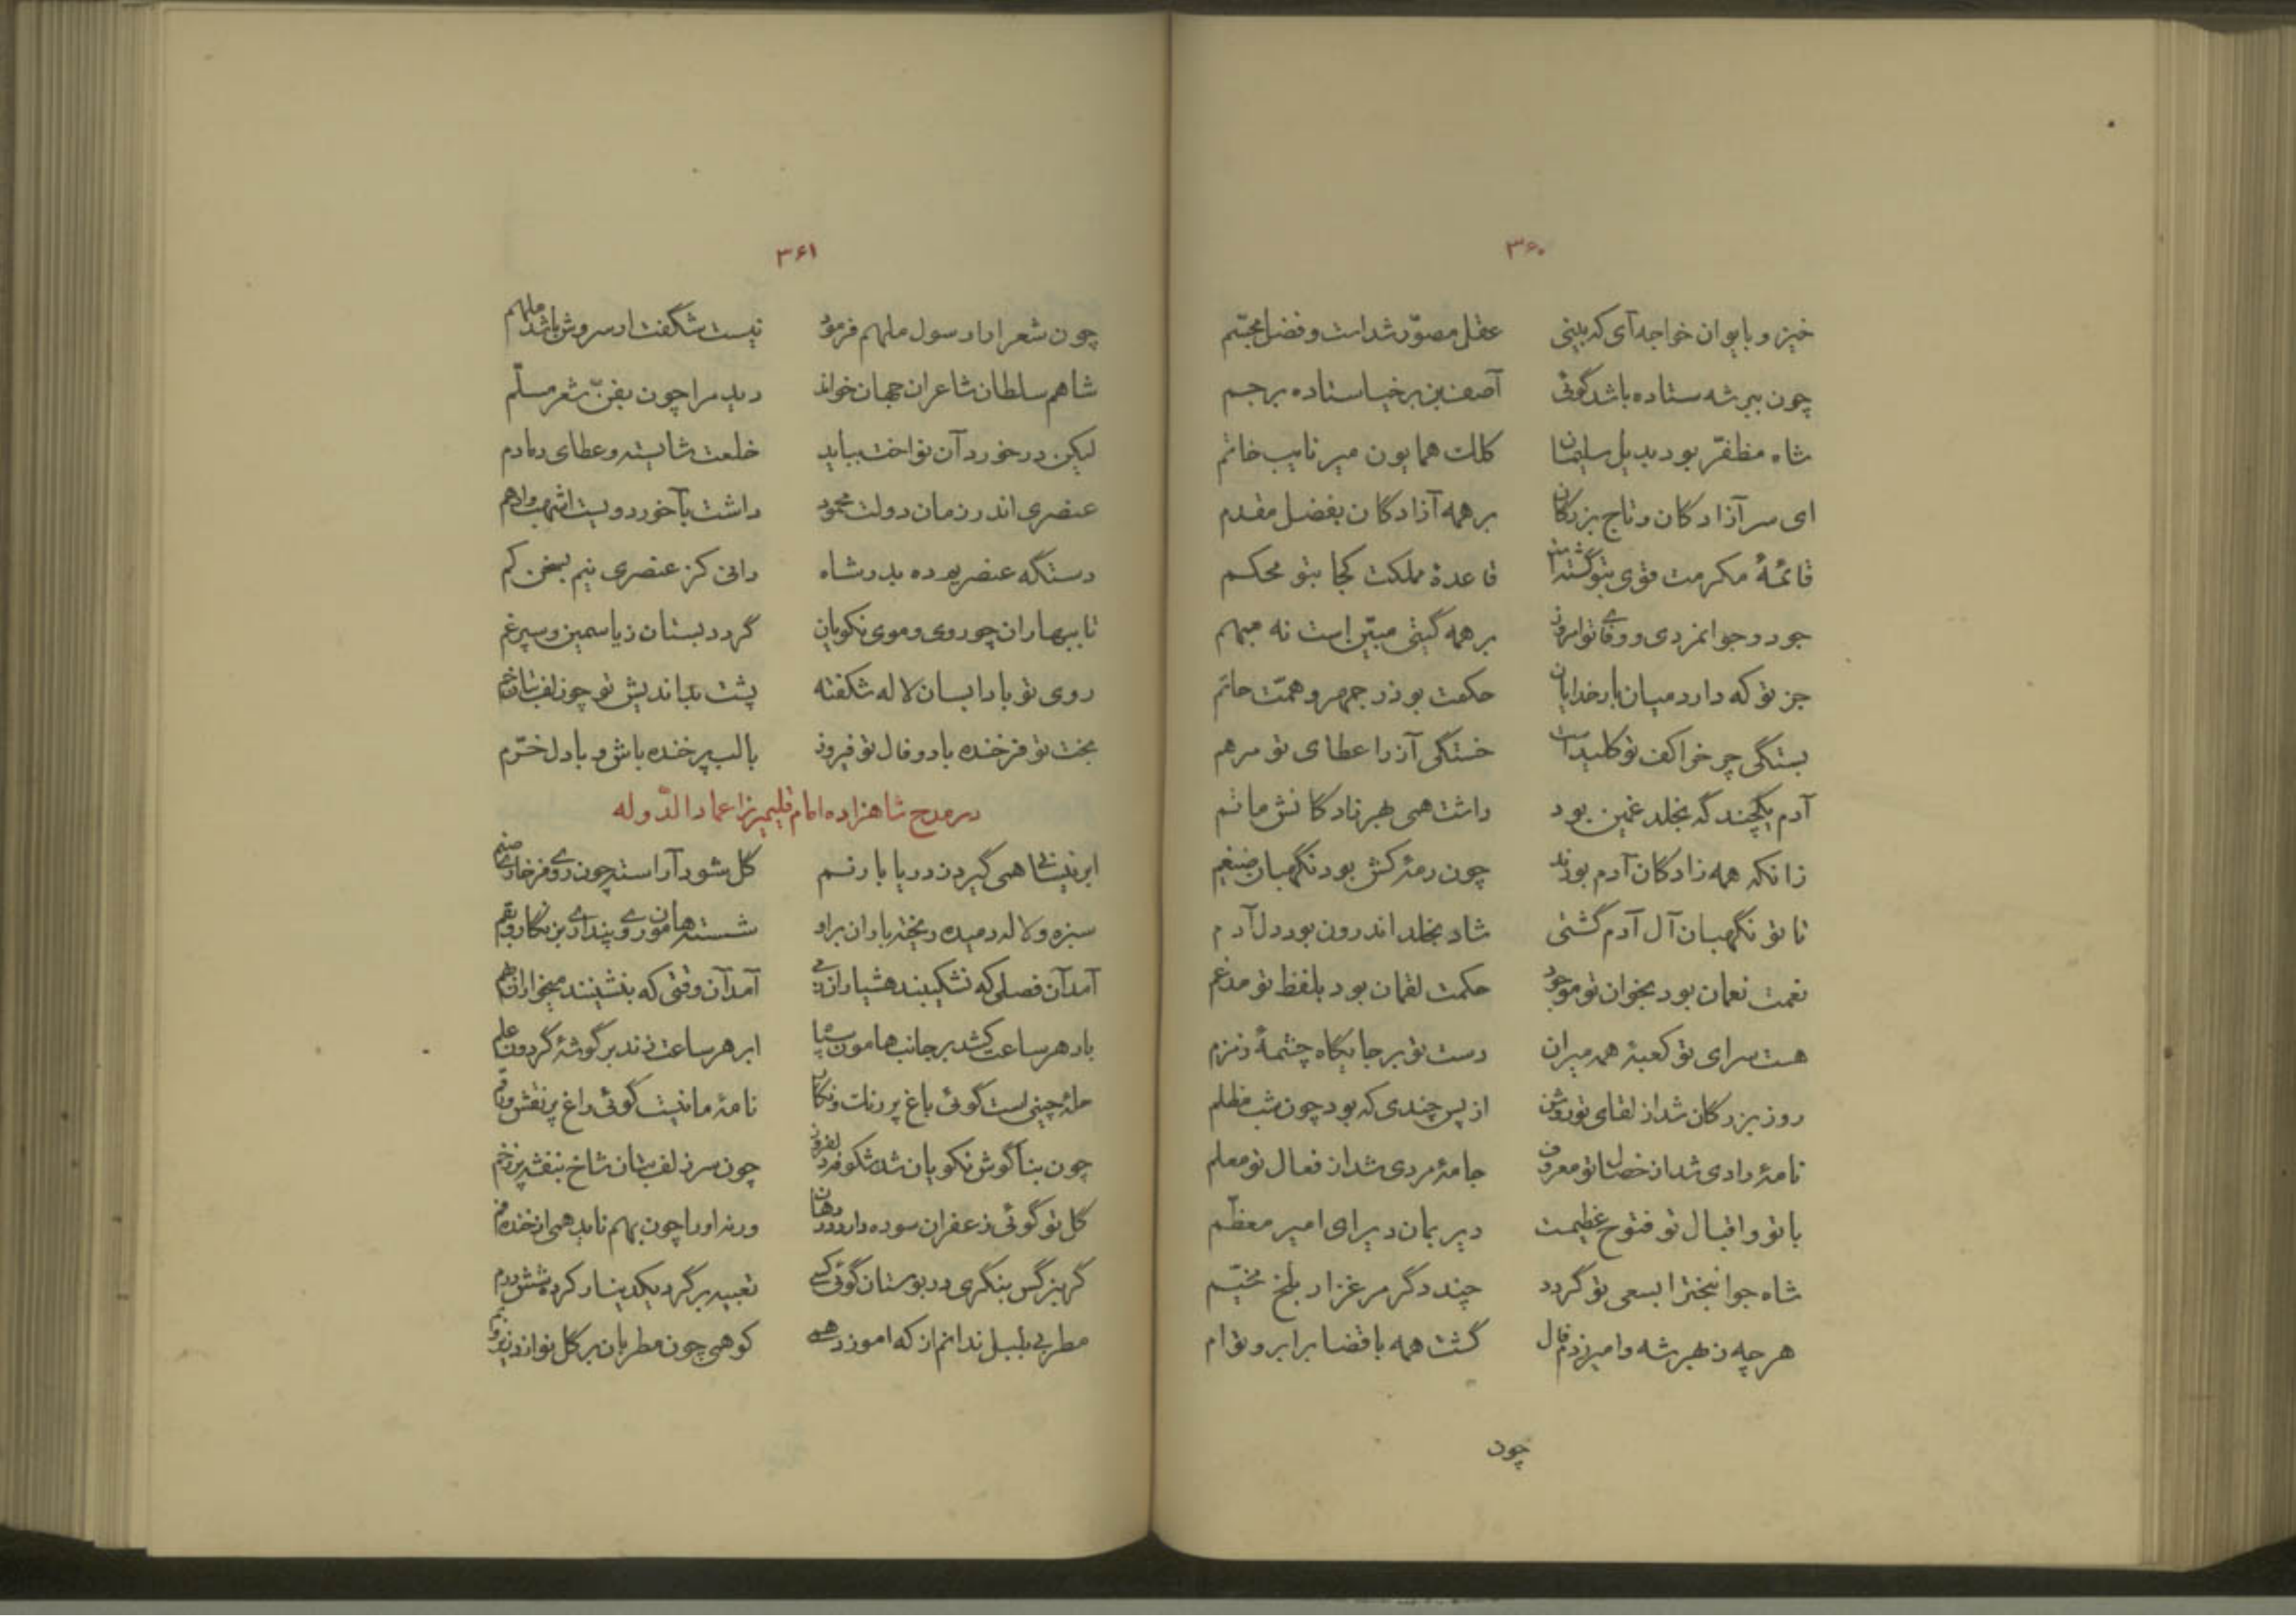 ۳۶۰
خیز و بایوان خواجه آی که بینی عقل مصوّر شداست و فضل مجسّم
چون ببر شه ستاده باشد گوئی آصف بن برخیا ستاده بر جم
شاه مظفّر بود بدیل سلیمان کلک همایون میر نایب خاتم
ای سر آزادکان و تاج بزرکان بر همه آزادکان بفضل مقدم
قائمهٔ مکرمت قوی بتو گشته قاعدهٔ مملکت کجا بتو محکم
جود و جوانمردی و وفای تو امروز بر همه گیتی مبیّن است نه مبهم
جز تو که دارد میان بارخدایان حکمت بوذرجمهر و همّت حاتم
بستگی چرخ را کف تو کلید است خستگی آز را عطای تو مرهم
آدم یکچند گه بخلد غمین بود داشت همی بهر زادکانش ماتم
زانکه همه زادکان آدم بودند چون رمهٔ کش بود نگهبان ضیغم
تا تو نگهبان آل آدم گشتی شاد بخلد اندرون بود دل آدم
نعمت نعمان بود بخوان تو موجود حکمت لقمان بود بلفظ تو مدغم
هست سرای تو کعبهٔ همه میران دست تو بر جایگاه چشمهٔ زمزم
روز بزرکان شد از لقای تو روشن از پس چندی که بود چون شب مظلم
نامهٔ رادی شد از خصال تو معروف جامهٔ مردی شد از فعال تو معلم
با تو و اقبال تو فتوح عظیمت دیر بمان دیر ای امیر معظّم
شاه جوانبخت را بسعی تو گردد چند دگر مرغزار بلخ مخیّم
هر چه ز بهر شه و امیر زدم فال گشت همه با قضا برابر و توام
چون
۳۶۱
چون شعرا را رسول ملهم فرمود نیست شگفت ار سروش باشد ملهم
شاهم سلطان شاعران جهان خواند دید مرا چون بفنّ شعر مسلّم
لیکن درخورد آن نواخت بباید خلعت شایسته و عطای دمادم
عنصری اندر زمان دولت محمود داشت بآخور دویست اشهب و ادهم
دستگه عنصریم ده بدر شاه دانی کز عنصری نیم بسخن کم
تا ببهاران چو روی و موی نکویان گردد بستان ز یاسمین و سپرغم
روی تو بادا بسان لاله شکفته پشت بداندیش تو چو زلف بتان خم
بخت تو فرخنده باد و فال تو فیروز با لب پر خنده باش و با دل خرّم
در مدح شاهزاده امام قلیمیرزا عمادالدّوله
ابر نیسانی همی گیرد ز دریا بار نم گل شود آراسته چون روی فرخاری صنم
سبزه و لاله دمیده ریخته باران بر او شسته هامون روی پنداری بنگار و بقم
آمد آن فصلی که نشکیبند هشیاران ز می آمد آن وقتی که بنشینند میخواران بهم
باد هر ساعت کشد بر جانب هامون سپاه ابر هر ساعت زند بر گوشهٔ گردون علم
حلهٔ چینی است گوئی باغ پر رنگ و نگار نامهٔ مانیست گوئی راغ پر نقش و رقم
چون بناگوش نکویان شد شکوفه دلفروز چون سر زلف بتان شاخ بنفشه پر ز خم
گل تو گوئی زعفران سوده دارد در دهان ورنه او را چون بهم ناید همی از خنده فم
گر بنرگس بنگری در بوستان گوئی کسی تعبیه بر گرد یک دینار کرده شش درم
مطربی بلبل ندانم از که اموزد همی کو همی چون مطربان بر گل نوازد زیر و بم